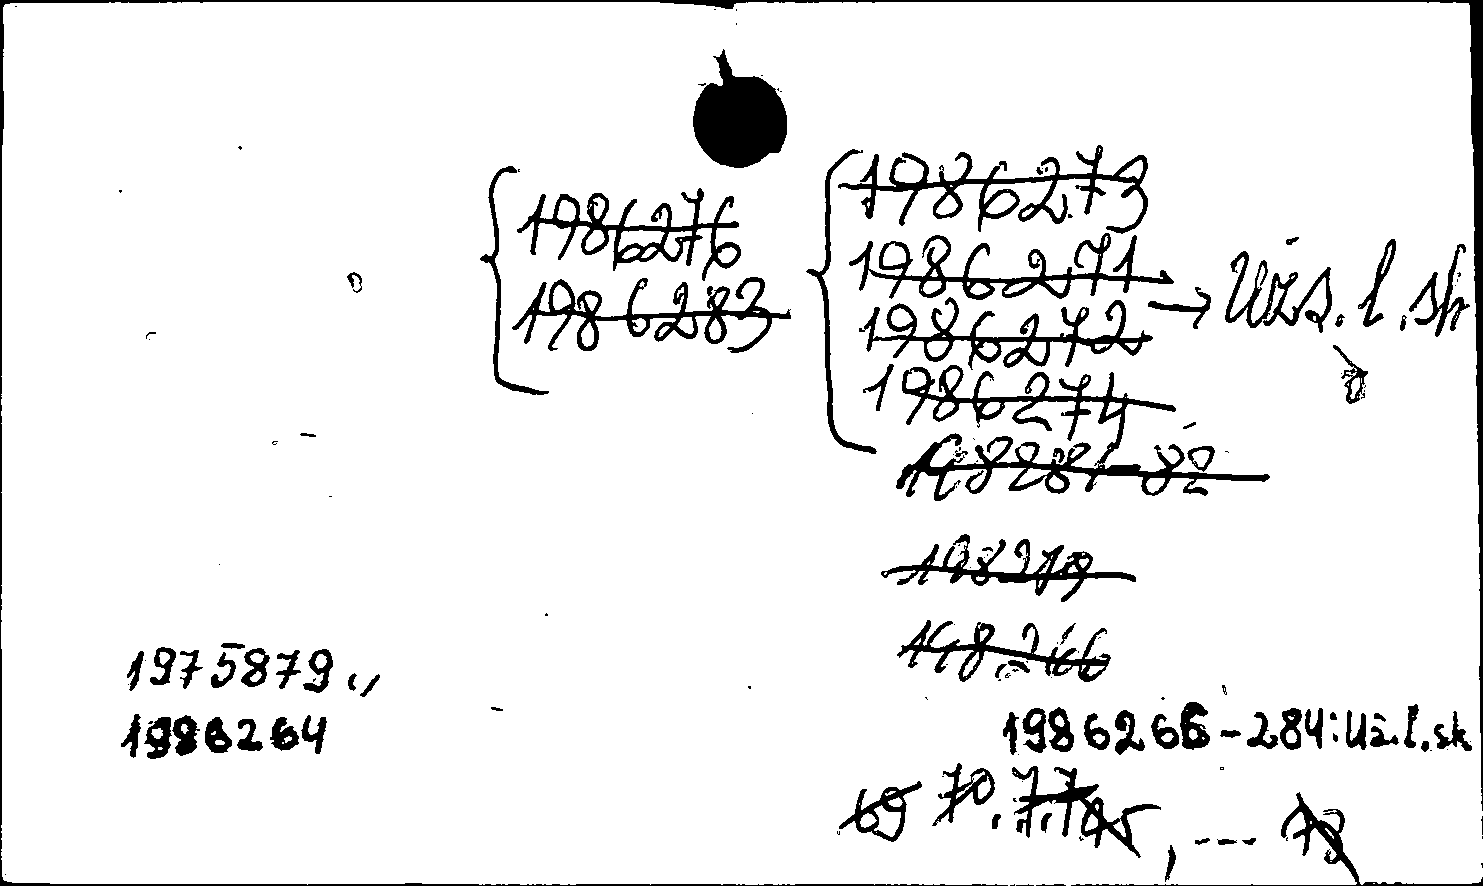 1986276
1986283
1986273
1986271
1986272
1986274
198281-82
198279
198266
1975879
1986264
1986266-284: Už.l.sk
69 70